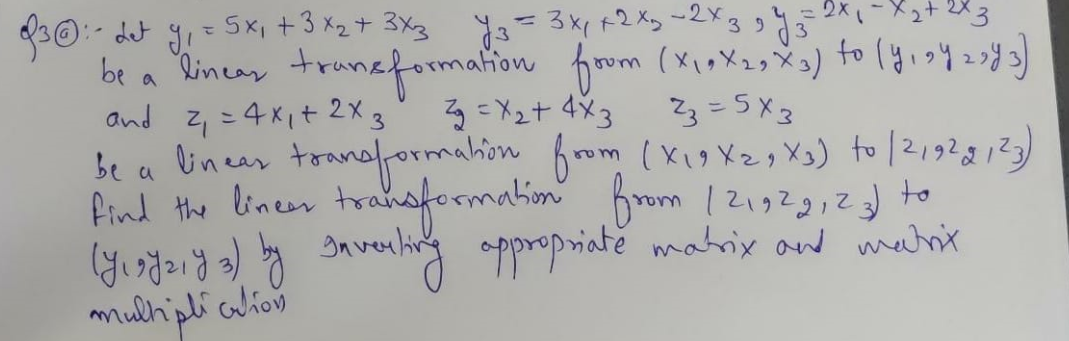 Q3@:- let y₁ = 5x₁ + 3x₂ + 3x₃ y₃ = 3x₁ + 2x₂ - 2x₃, y₃ = 2x₁ - x₂ + 2x₃
be a linear transformation from (x₁, x₂, x₃) to (y₁, y₂, y₃)
and z₁ = 4x₁ + 2x₃ z₂ = x₂ + 4x₃ z₃ = 5x₃
be a linear transformation from (x₁, x₂, x₃) to (z₁, z₂, z₃)
find the linear transformation from (z₁, z₂, z₃) to
(y₁, y₂, y₃) by Inverting appropriate matrix and matrix
multiplication